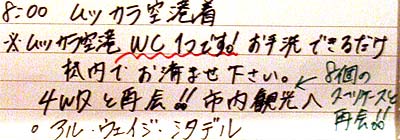 8:00 ムッカラ空港着
※ムッカラ空港 WC 1つです! お手洗できるだけ
機内でお済ませ下さい。
←8個の
スーツケースと
再会!!
4WDと再会!! 市内観光へ
○アル・ウェイジ・シタデル